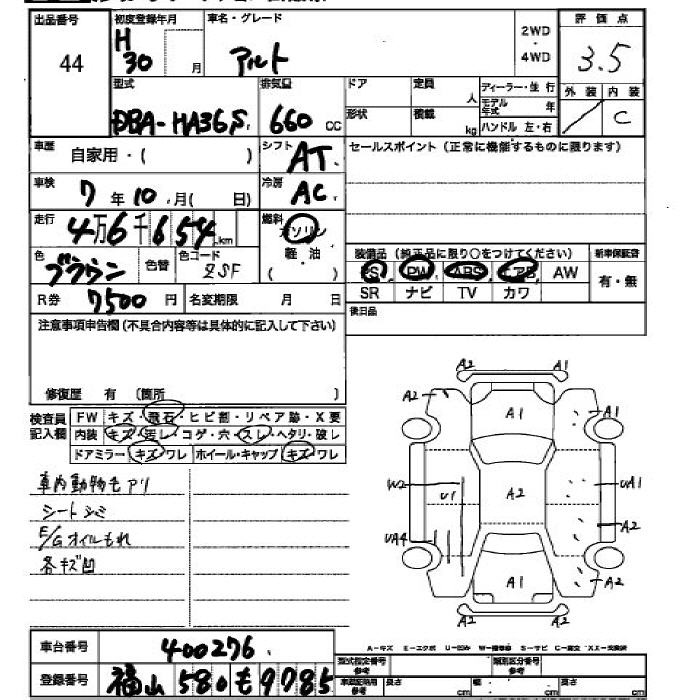 出品番号 初度登録年月 車名・グレード 2WD・4WD 評価点
44 H30 月 アルト 3.5
型式 排気量 ドア 定員 人 ディーラー・並行 外装 内装
DBA-HA36S 660 CC 形状 積載 kg モデル年式 年 C
ハンドル 左・右
車歴 自家用・( ) シフト AT セールスポイント(正常に機能するものに限ります)
車検 7年10月( 日) 冷房 AC
走行 4万6千654km 燃料 ガソリン
軽・油
( )
色 ブラウン 色替 色コード ZSF 装備品(純正品に限り○をつけてください) 新車保証書
PS PW ABS エアB AW 有・無
R券 7500円 名変期限 月 日 SR ナビ TV カワ
注意事項申告欄(不具合内容等は具体的に記入して下さい) 後日品
修復歴 有 〔箇所 〕
検査員記入欄 FW キズ・飛石・ヒビ割・リペア跡・X要
内装 キズ・汚レ・コゲ・穴・スレ・ヘタリ・破レ
ドアミラー キズ・ワレ ホイール・キャップ キズ・ワレ
車内動物毛アリ
シートシミ
E/Gオイルもれ
各キズ凹
A2 A1
A2 A1 A2
W2 U1 A2 UA1
A2
UA4
A1 A2
A2 A2
車台番号 400276
A-キズ E-エクボ U-凹み W-補修跡 S-サビ C-腐食 XX-交換済
登録番号 福山 580 も 9785
型式指定番号 参考 類別区分番号 参考
車輌記載寸法 参考 長さ cm 幅 cm 高さ cm